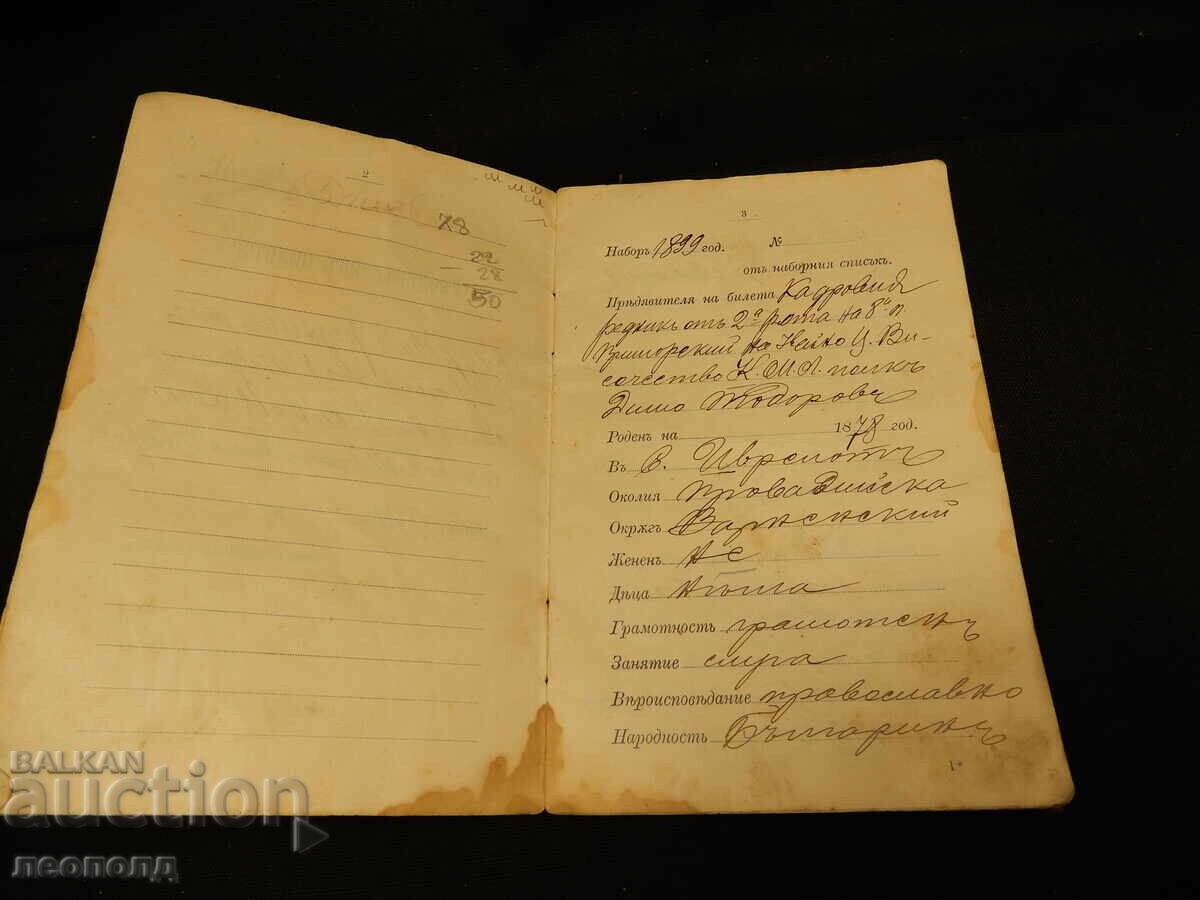 2
78
22
28
50
3
Наборъ 1899 год. №
отъ наборния списъкъ.
Прѣдявителя на билета Кадровия
редникъ отъ 2а рота на 8й п.
Приморский на Нейно Ц. Ви-
сочество К. М. Л. полкъ
Димо Тодоровъ
Роденъ на 1878 год.
Въ С.
Околия Провадийска
Окрѫгъ Варненский
Жененъ Не
Дѣца нѣма
Грамотность грамотенъ
Занятие
Вѣроисповѣдание православно
Народность Българинъ
1*
BALKAN
auction
леополд